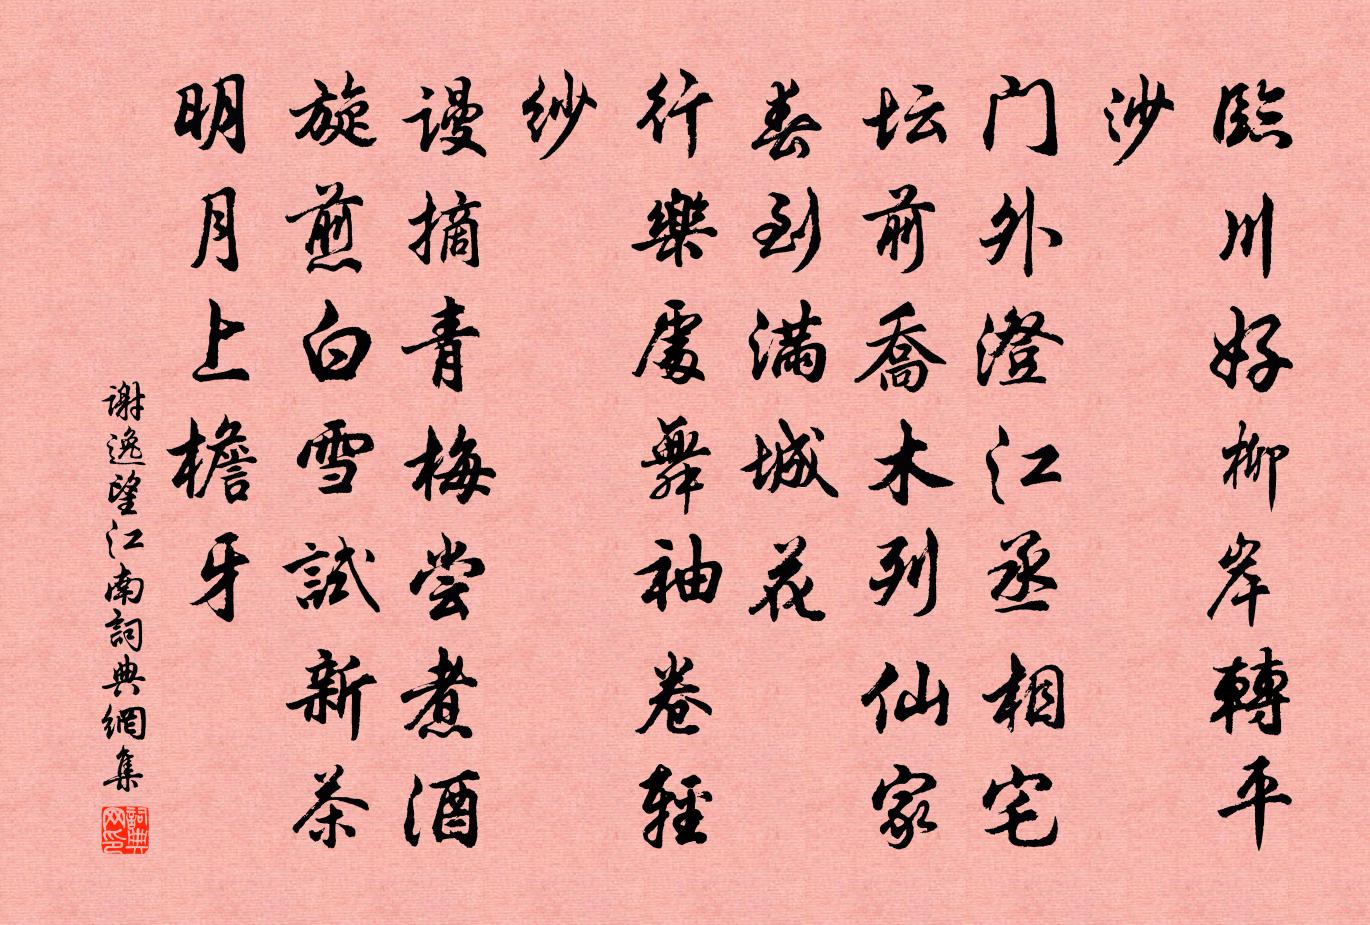 臨川好柳岸轉平
沙
门外澄江丞相宅
坛前喬木列仙家
春到满城花
行樂處舞袖卷輕
纱
谩摘青梅尝煮酒
旋煎白雪試新茶
明月上檐牙
谢逸望江南詞典網集
詞典
网印